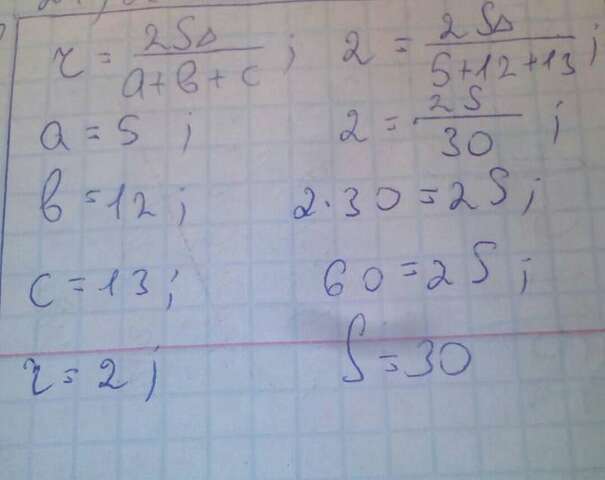 r = 2S△ / a+b+c ; 2 = 2S△ / 5+12+13 ;
a = 5 ; 2 = 2S / 30 ;
b = 12 ; 2·30 = 2S ;
c = 13 ; 60 = 2S ;
r = 2 ; S = 30